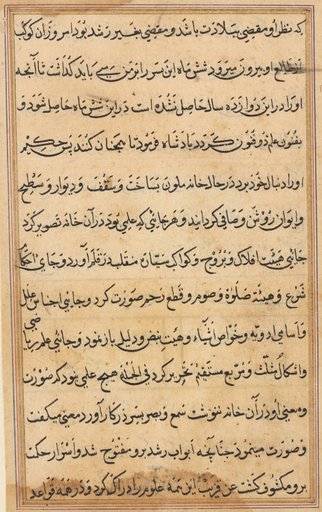 که نظر او مقتضی بلادت باشد و مقتضی بغیر رشد بود امروز آن کوکب
از طالع او بیرون میرود شش ماه این پسر را نزد من می باید گذاشت تا آنچه
او را در این دوازده سال حاصل نشده است در این شش ماه حاصل شود و
بفنون علم ذوفنون گردد پادشاه فرمود تا همچنان کنند پس حکیم
او را دنبال خود برد در حال خانه ملون بساخت و سقف و دیوار و سطح
و ایوان روشن و صافی گردانید و هر جائی که علمی بود در آن خانه تصویر کرد
جائی هیئت افلاک و بروج و کواکب سیاره منقلب در قلم آورد و جای احکام
شرع و هیئة صلوة و صوم و قطع رحم صورت کرد و جائی اجناس علل
و اسامی ادویه و خواص اشیاء و هیئت نبض و دلیل باز نمود و جائی علم ریاضی
و اشکال مثلث و مربع مستقیم تحریر کرد فی الجمله هیچ علمی نبود که صورت
و معنی او در آن خانه ننوشت سمع و بصر پسر در کار آورد معنی میگفت
و صورت مینمود چنانچه ابواب رشد برو مفتوح شد و اسرار حکمت
برو مکشوف گشت عن قریب این همه علوم را ادراک کرد و در همه قواعد